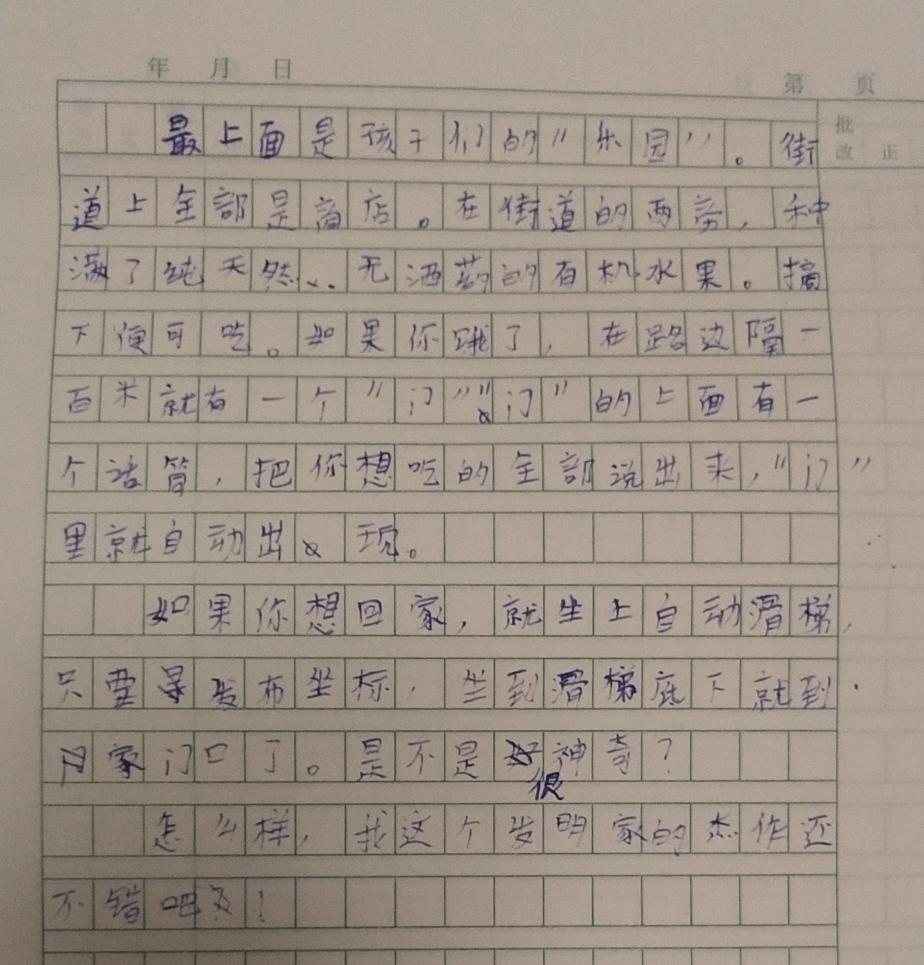 年 月 日
第 页
批改 正
最上面是孩子们的“乐园”。街
道上全部是商店。在街道的两旁，种
满了纯天然、无洒药的有机水果。摘
下便可吃。如果你饿了，在路边隔一
百米就有一个“门”“门”的上面有一
个话筒，把你想吃的全部说出来，“门”
里就自动出现。
如果你想回家，就坐上自动滑梯，
只要发布坐标，坐到滑梯底下就到
家门口了。是不是很神奇？
怎么样，我这个发明家的杰作还
不错吧！